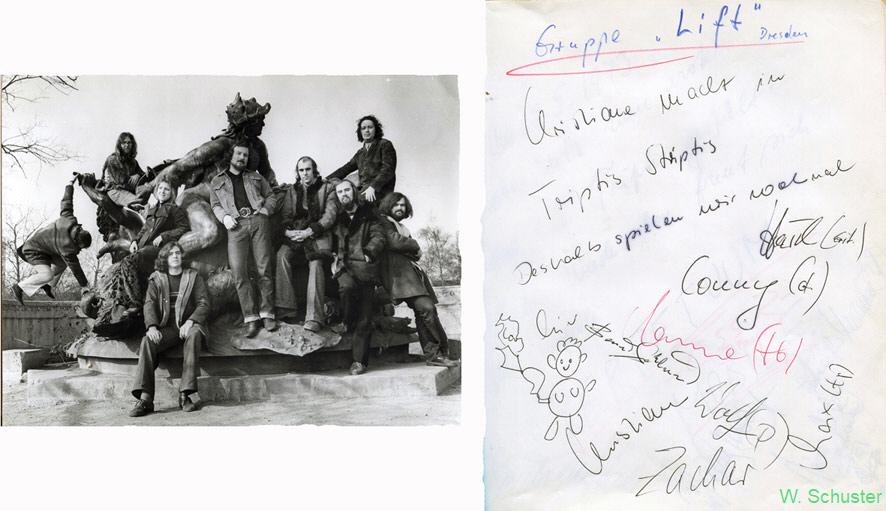 Gruppe „Lift" Dresden
Christiane macht in
Triptis Striptis
Deshalb spielen wir noch mal
(git.)
Conny (d.)
hier
(tb)
Christiane Wolf (p)
(tp)
Zachar
W. Schuster